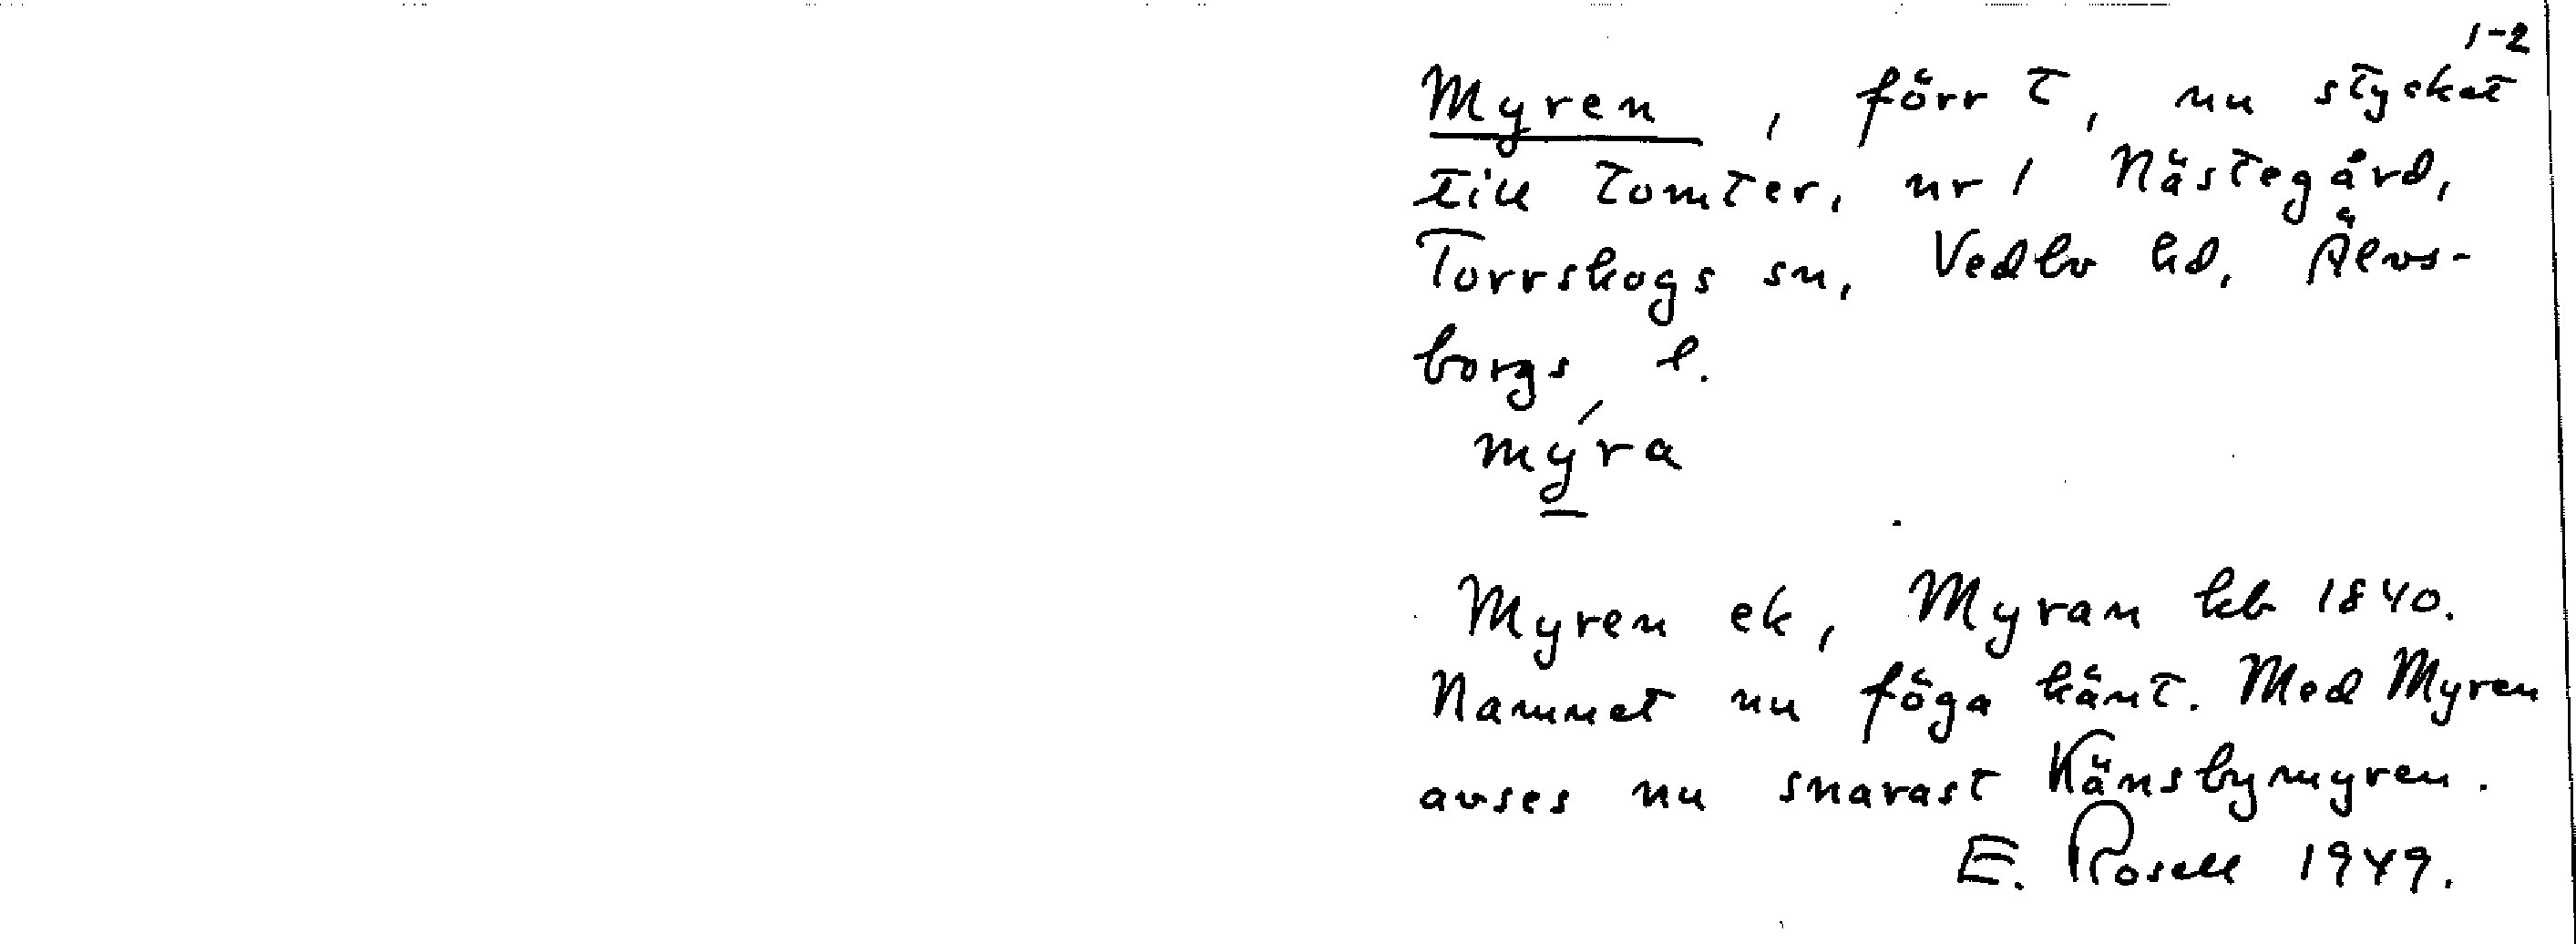 1-2
Myren, förr t, nu stycket
till tomter, nr 1 Nästegård,
Torrskogs sn, Vedbo hd, Älvs-
borgs l.
mýra
Myren ek, Myran kb 1840.
Namnet nu föga känt. Med Myren
avses nu snarast Känsbymyren.
E. Rosell 1949.